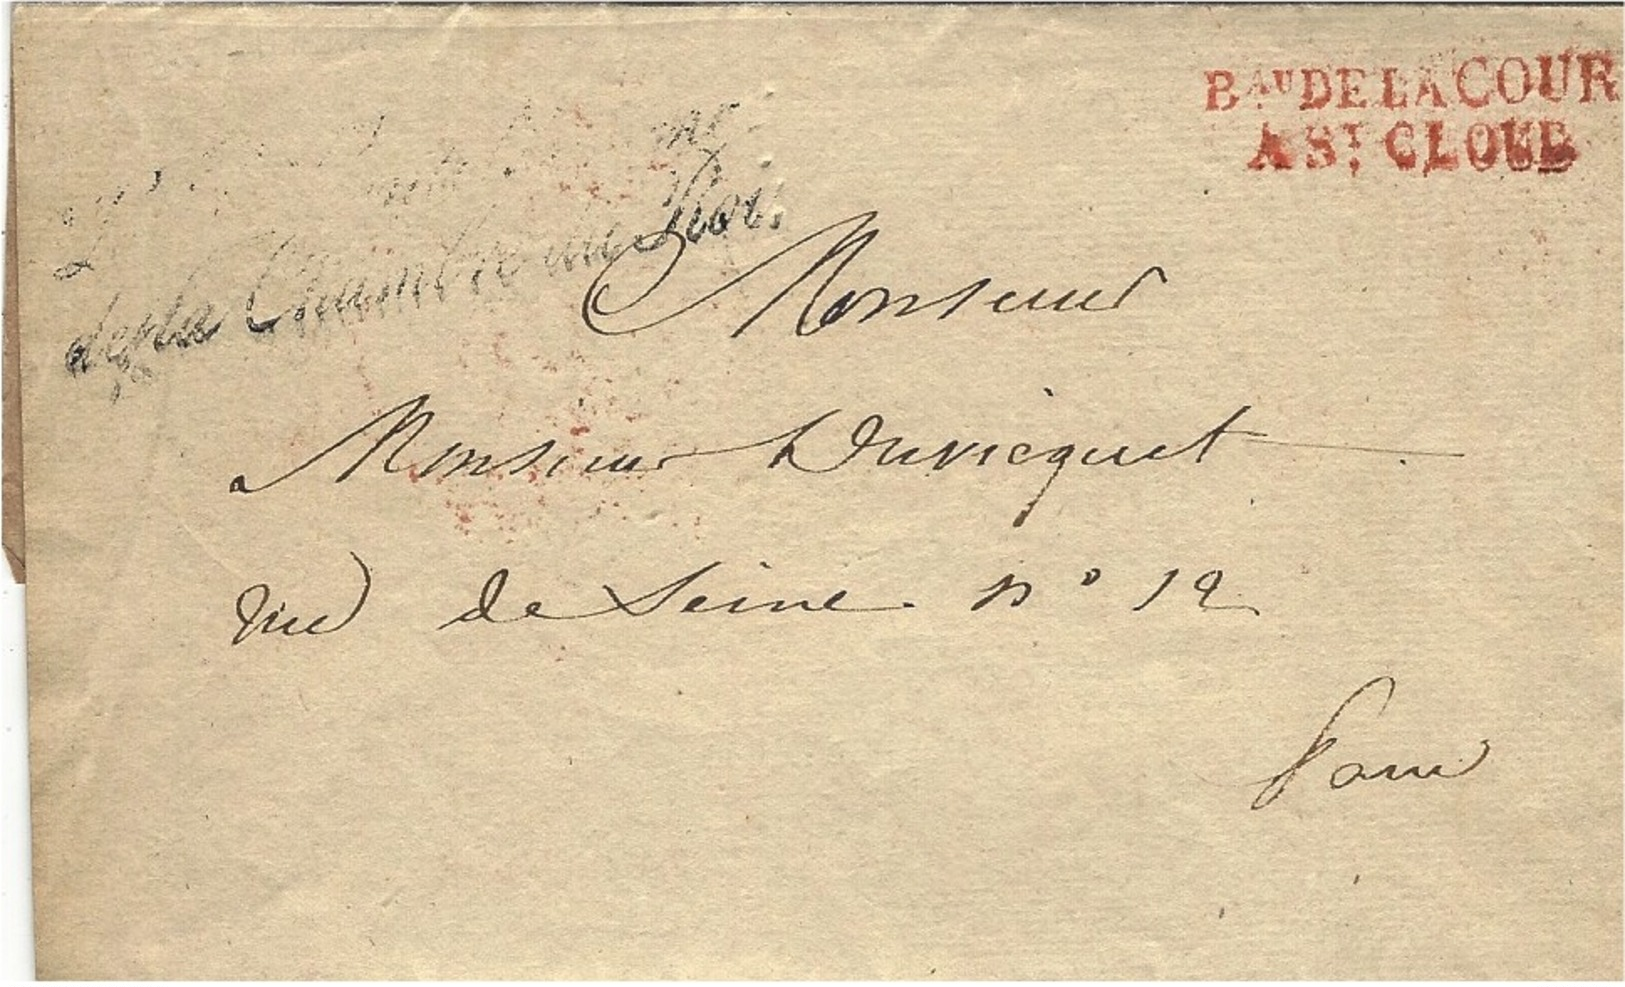 Bau DE LA COUR
A St. CLOUD
de la Chambre du Roi.
Monsieur
Monsieur Duvicquet
rue de Seine n° 12
Paris